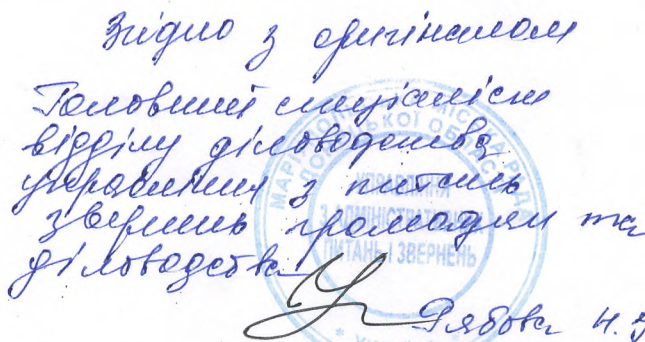 Згідно з оригіналом
Головний спеціаліст
відділу діловодства
управління з питань
звернень громадян та
діловодства
Рябова Н.
МАРІУПОЛЬСЬКА МІСЬКА РАДА
ДОНЕЦЬКОЇ ОБЛАСТІ
УПРАВЛІННЯ
З АДМІНІСТРАТИВНИХ
ПИТАНЬ І ЗВЕРНЕНЬ